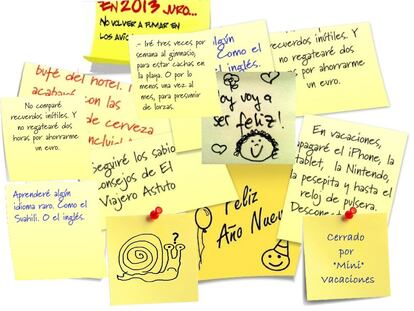 EN 2013 JURO...
NO VOLVER A FUMAR EN
LOS
.- Iré tres veces por
semana al gimnasio,
para estar cachas en
la playa. O por lo
menos, una vez al
mes, para presumir
de lorzas.
algún
Como el
inglés.
recuerdos inútiles. Y
no regatearé dos
horas por ahorrarme
un euro.
bufé del hotel.
acabar
con las
de cerveza
No compré
recuerdos inútiles. Y
no regatearé dos
horas por ahorrarme
un euro.
voy a
ser feliz!
En vacaciones,
apagaré el iPhone, la
tablet, la Nintendo,
la pesepita y hasta el
reloj de pulsera.
Seguiré los sabio
consejos de El
Viajero Astuto
Aprenderé algún
idioma raro. Como el
Suahili. O el inglés.
Feliz
Año Nuev
?
Cerrado
por
"Mini"
Vacaciones